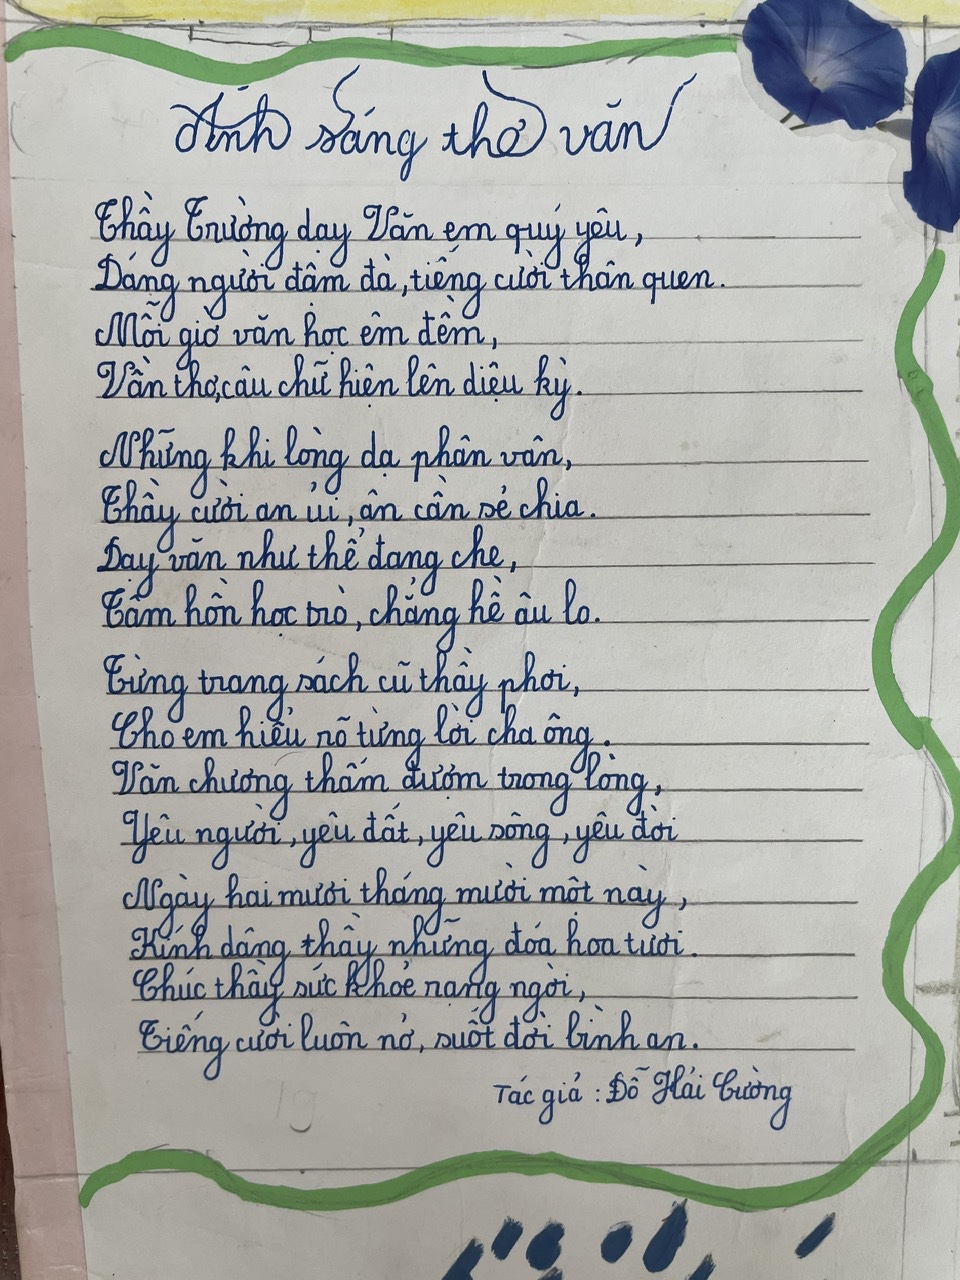 Ánh sáng thơ văn
Thầy Trường dạy Văn em quý yêu,
Dáng người đậm đà, tiếng cười thân quen.
Mỗi giờ văn học êm đềm,
Vần thơ, câu chữ hiện lên diệu kỳ.
Những khi lòng dạ phân vân,
Thầy cười an ủi, ân cần sẻ chia.
Dạy văn như thể đang che,
Tâm hồn học trò, chẳng hề âu lo.
Từng trang sách cũ thầy phơi,
Cho em hiểu rõ từng lời cha ông.
Văn chương thấm đượm trong lòng,
Yêu người, yêu đất, yêu sông, yêu đời
Ngày hai mươi tháng mười một này,
Kính dâng thầy những đoá hoa tươi.
Chúc thầy sức khoẻ rạng ngời,
Tiếng cười luôn nở, suốt đời bình an.
Tác giả : Đỗ Hải Cường